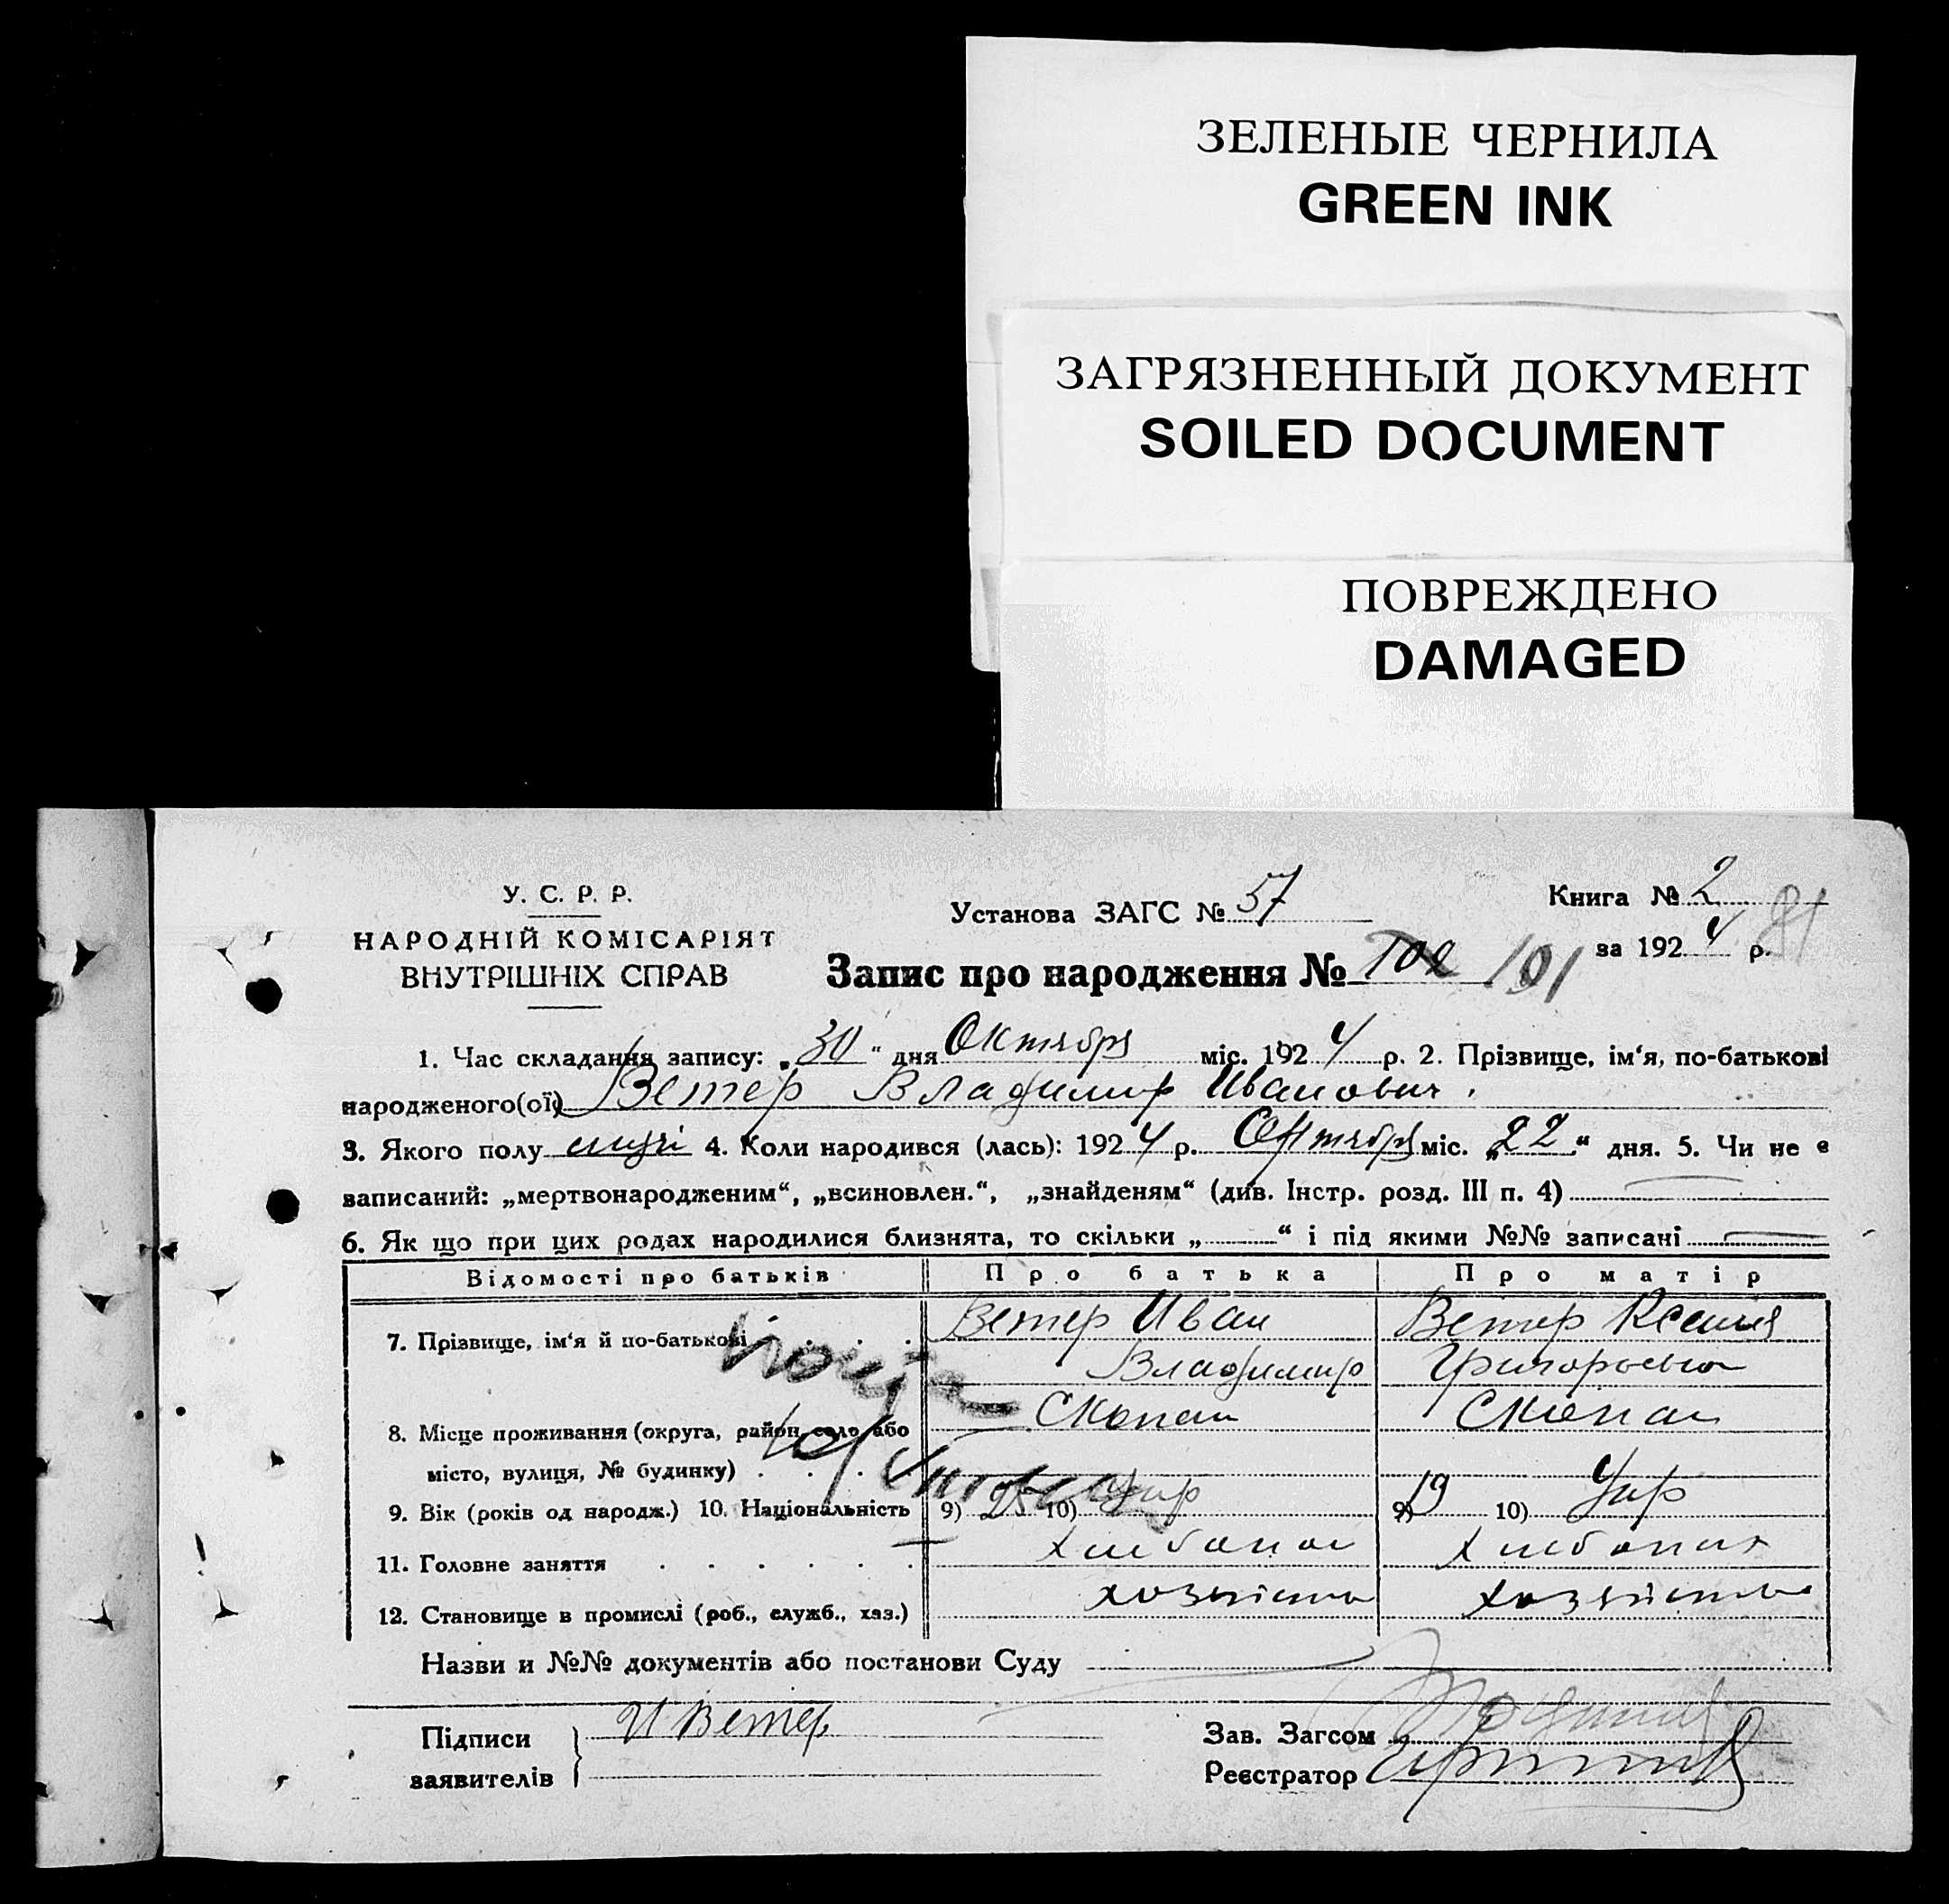 ЗЕЛЕНЫЕ ЧЕРНИЛА
GREEN INK
ЗАГРЯЗНЕННЫЙ ДОКУМЕНТ
SOILED DOCUMENT
ПОВРЕЖДЕНО
DAMAGED
У. С. Р. Р.
НАРОДНІЙ КОМІСАРІЯТ
ВНУТРІШНІХ СПРАВ
Установа ЗАГС № 57
Книга № 2
за 1924 р. 81
Запис про народження № 102 101
1. Час складання запису: „30“ дня Октября міс. 1924 р. 2. Прізвище, ім‘я, по-батькові
народженого(ої) Ветер Владимир Иванович.
3. Якого полу 4. Коли народився (лась): 1924 р. міс. „22“ дня. 5. Чи не є
записаний: „мертвонародженим“, „всиновлен.“, „знайденям“ (див. Інстр. розд. III п. 4)
6. Як що при цих родах народилися близнята, то скільки „ “ і під якими №№ записані
Відомості про батьків Про батька Про матір
7. Прізвище, ім‘я й по-батькові Ветер Иван Ветер Ксения
Владимир Григорьевна
8. Місце проживання (округа, район, село або Скопан Скопан
місто, вулиця, № будинку)
9. Вік (років од народж.) 10. Національність 9) 25 10) Укр 9) 19 10) Укр
11. Головне заняття
12. Становище в промислі (роб., служб., хаз.)
Назви и №№ документів або постанови Суду
Підписи И Ветер
заявителів
Зав. Загсом
Реєстратор